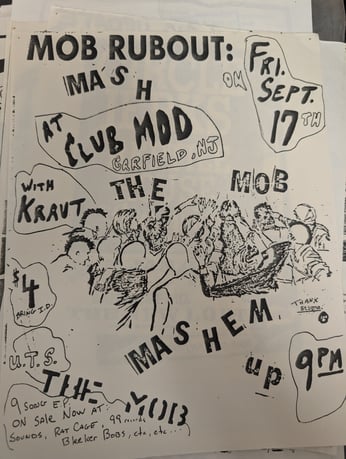 MOB RUBOUT:
MASH
ON
FRI.
SEPT.
17TH
AT
CLUB MOD
GARFIELD, NJ
WITH
KRAUT
THE MOB
$4
BRING I.D.
THANX
MASHEM
up
9PM
U.T.S.
THE MOB
9 SONG E.P.
ON SALE NOW AT:
SOUNDS, RAT CAGE, 99
Bleeker BOBS, etc, etc...